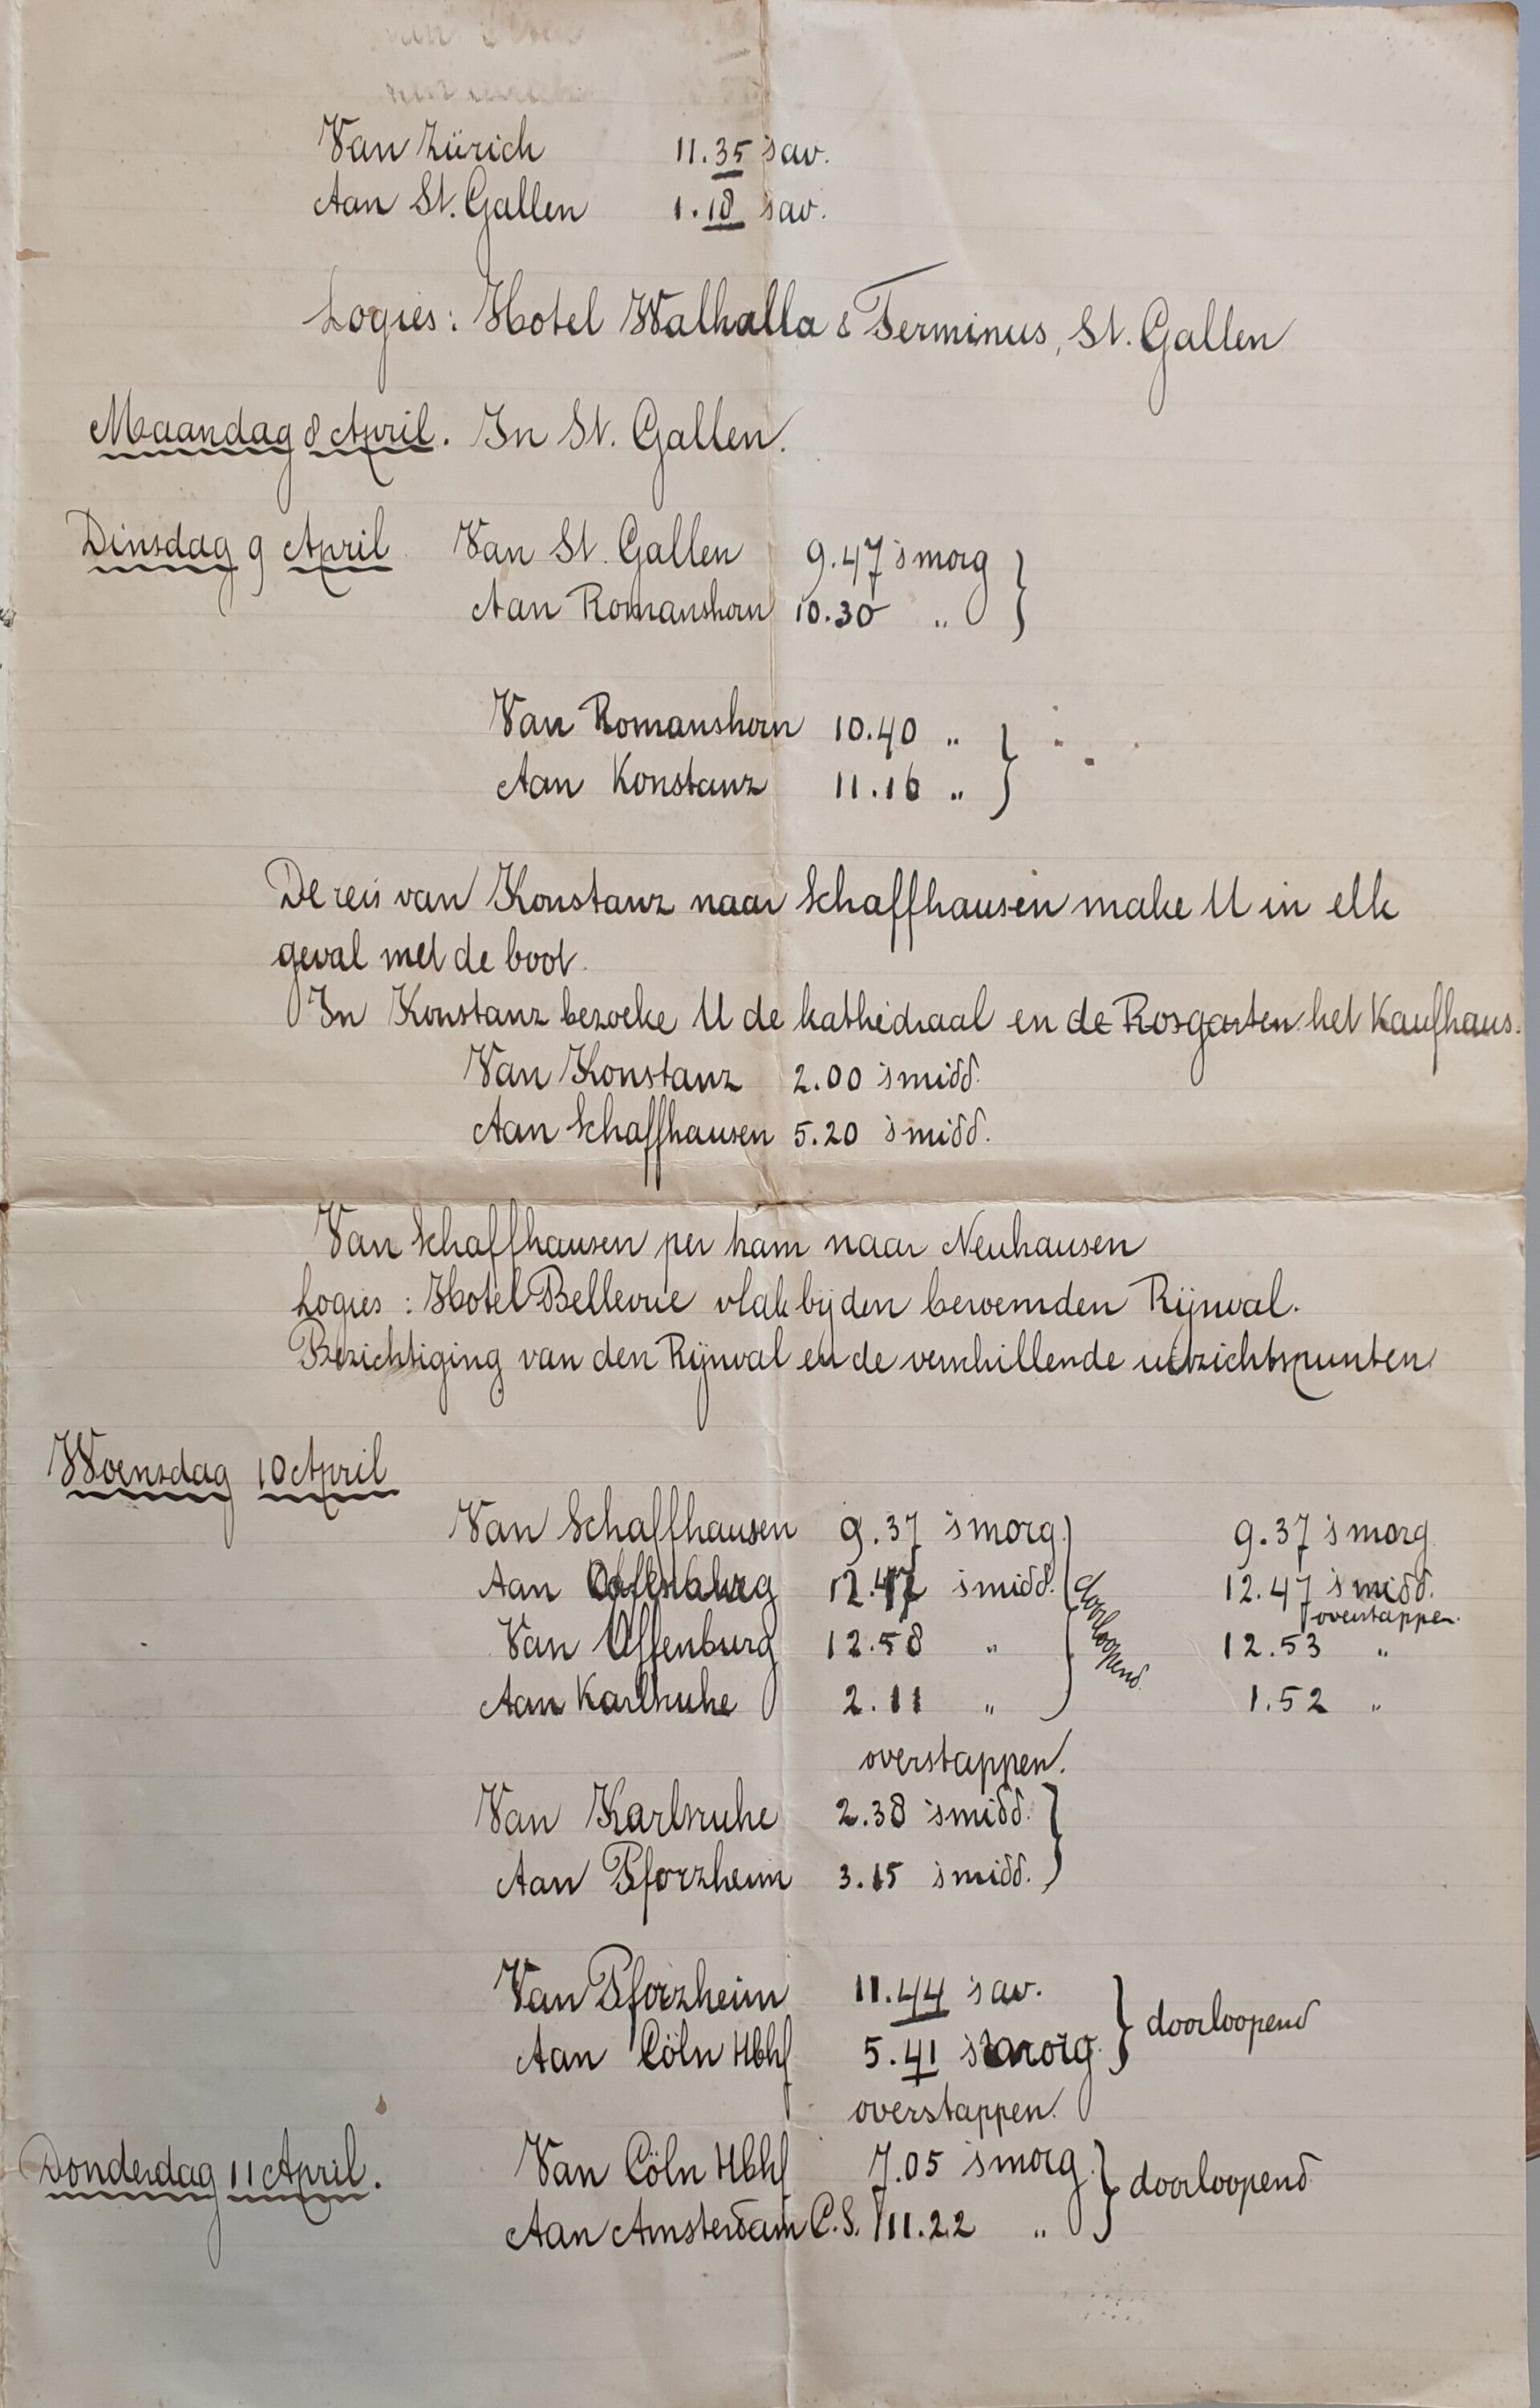 Van Zürich 11.35 's av.
Aan St. Gallen 1.18 's av.
Logies: Hotel Walhalla & Terminus, St. Gallen
Maandag 8 April. In St. Gallen.
Dinsdag 9 April Van St. Gallen 9.47 's morg
Aan Romanshorn 10.30 "
Van Romanshorn 10.40 "
Aan Konstanz 11.16 "
De reis van Konstanz naar Schaffhausen make U in elk
geval met de boot.
In Konstanz bezoeke U de kathedraal en de Rosgarten het Kaufhaus.
Van Konstanz 2.00 's midd.
Aan Schaffhausen 5.20 's midd.
Van Schaffhausen per tram naar Neuhausen
Logies: Hotel Bellevue vlak bij den beroemden Rijnval.
Bezichtiging van den Rijnval en de verschillende uitzichtspunten
Woensdag 10 April
Van Schaffhausen 9.37 's morg. 9.37 's morg
Aan Offenburg 12.47 's midd. doorloopend 12.47 's midd.
overstappen.
Van Offenburg 12.58 " 12.53 "
Aan Karlsruhe 2.11 " 1.52 "
overstappen.
Van Karlsruhe 2.38 's midd.
Aan Pforzheim 3.15 's midd.
Van Pforzheim 11.44 's av. doorloopend
Aan Cöln Hbhf 5.41 's morg.
overstappen.
Donderdag 11 April. Van Cöln Hbhf 7.05 's morg. doorloopend
Aan Amsterdam C.S. 11.22 "